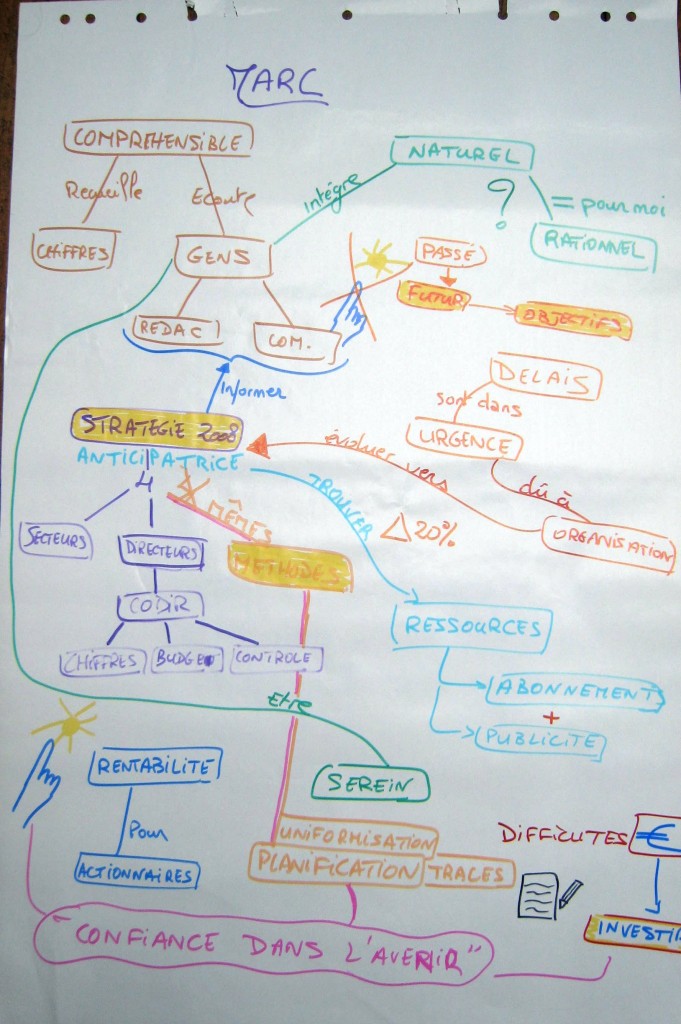 MARC
COMPREHENSIBLE
NATUREL
Recueille
Ecoute
Intègre
?
= pour moi
CHIFFRES
GENS
PASSÉ
RATIONNEL
FUTUR
OBJECTIFS
REDAC
COM.
Informer
DELAIS
sont dans
STRATEGIE 2008
URGENCE
ANTICIPATRICE
évoluer vers
dû à
4
MÊMES
TROUVER
△ 20%
SECTEURS
DIRECTEURS
METHODES
ORGANISATION
CODIR
RESSOURCES
CHIFFRES
BUDGET
CONTROLE
ABONNEMENT
+
Etre
PUBLICITE
RENTABILITE
SEREIN
Pour
UNIFORMISATION
DIFFICUTES
€
ACTIONNAIRES
PLANIFICATION
TRACES
INVESTIR
"CONFIANCE DANS L'AVENIR"